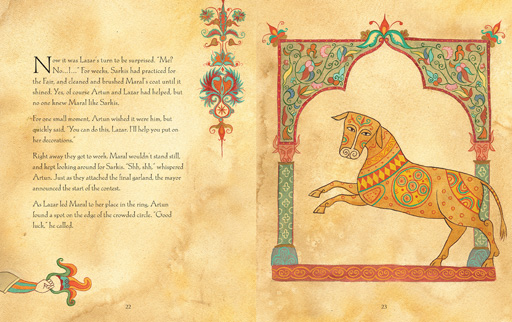 Now it was Lazar's turn to be surprised. "Me?
No...I...." For weeks, Sarkis had practiced for
the Fair, and cleaned and brushed Maral's coat until it
shined. Yes, of course Artun and Lazar had helped, but
no one knew Maral like Sarkis.
For one small moment, Artun wished it were him, but
quickly said, "You can do this, Lazar. I'll help you put on
her decorations."
Right away they got to work. Maral wouldn't stand still,
and kept looking around for Sarkis. "Shh, shh," whispered
Artun. Just as they attached the final garland, the mayor
announced the start of the contest.
As Lazar led Maral to her place in the ring, Artun
found a spot on the edge of the crowded circle. "Good
luck," he called.
22
23